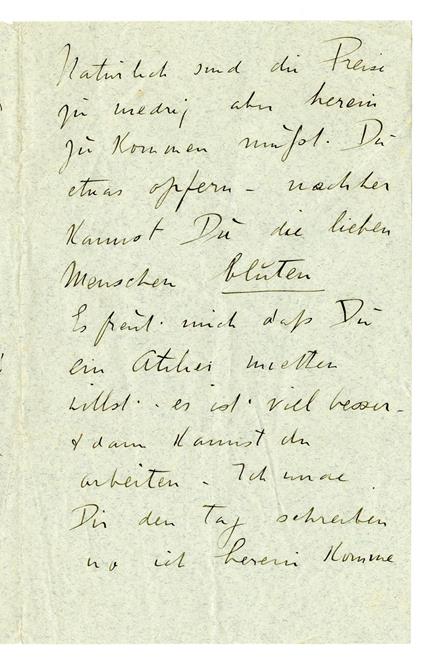 Natürlich sind die Preise
zu niedrig aber herein
zu kommen müßt. Du
etwas opfern - nachher
kannst Du die lieben
Menschen bluten
Es freut mich daß Du
ein Atelier mietten
willst - es ist viel besser -
& dann kannst du
arbeiten - Ich werde
Dir den Tag schreiben
wo ich herein komme